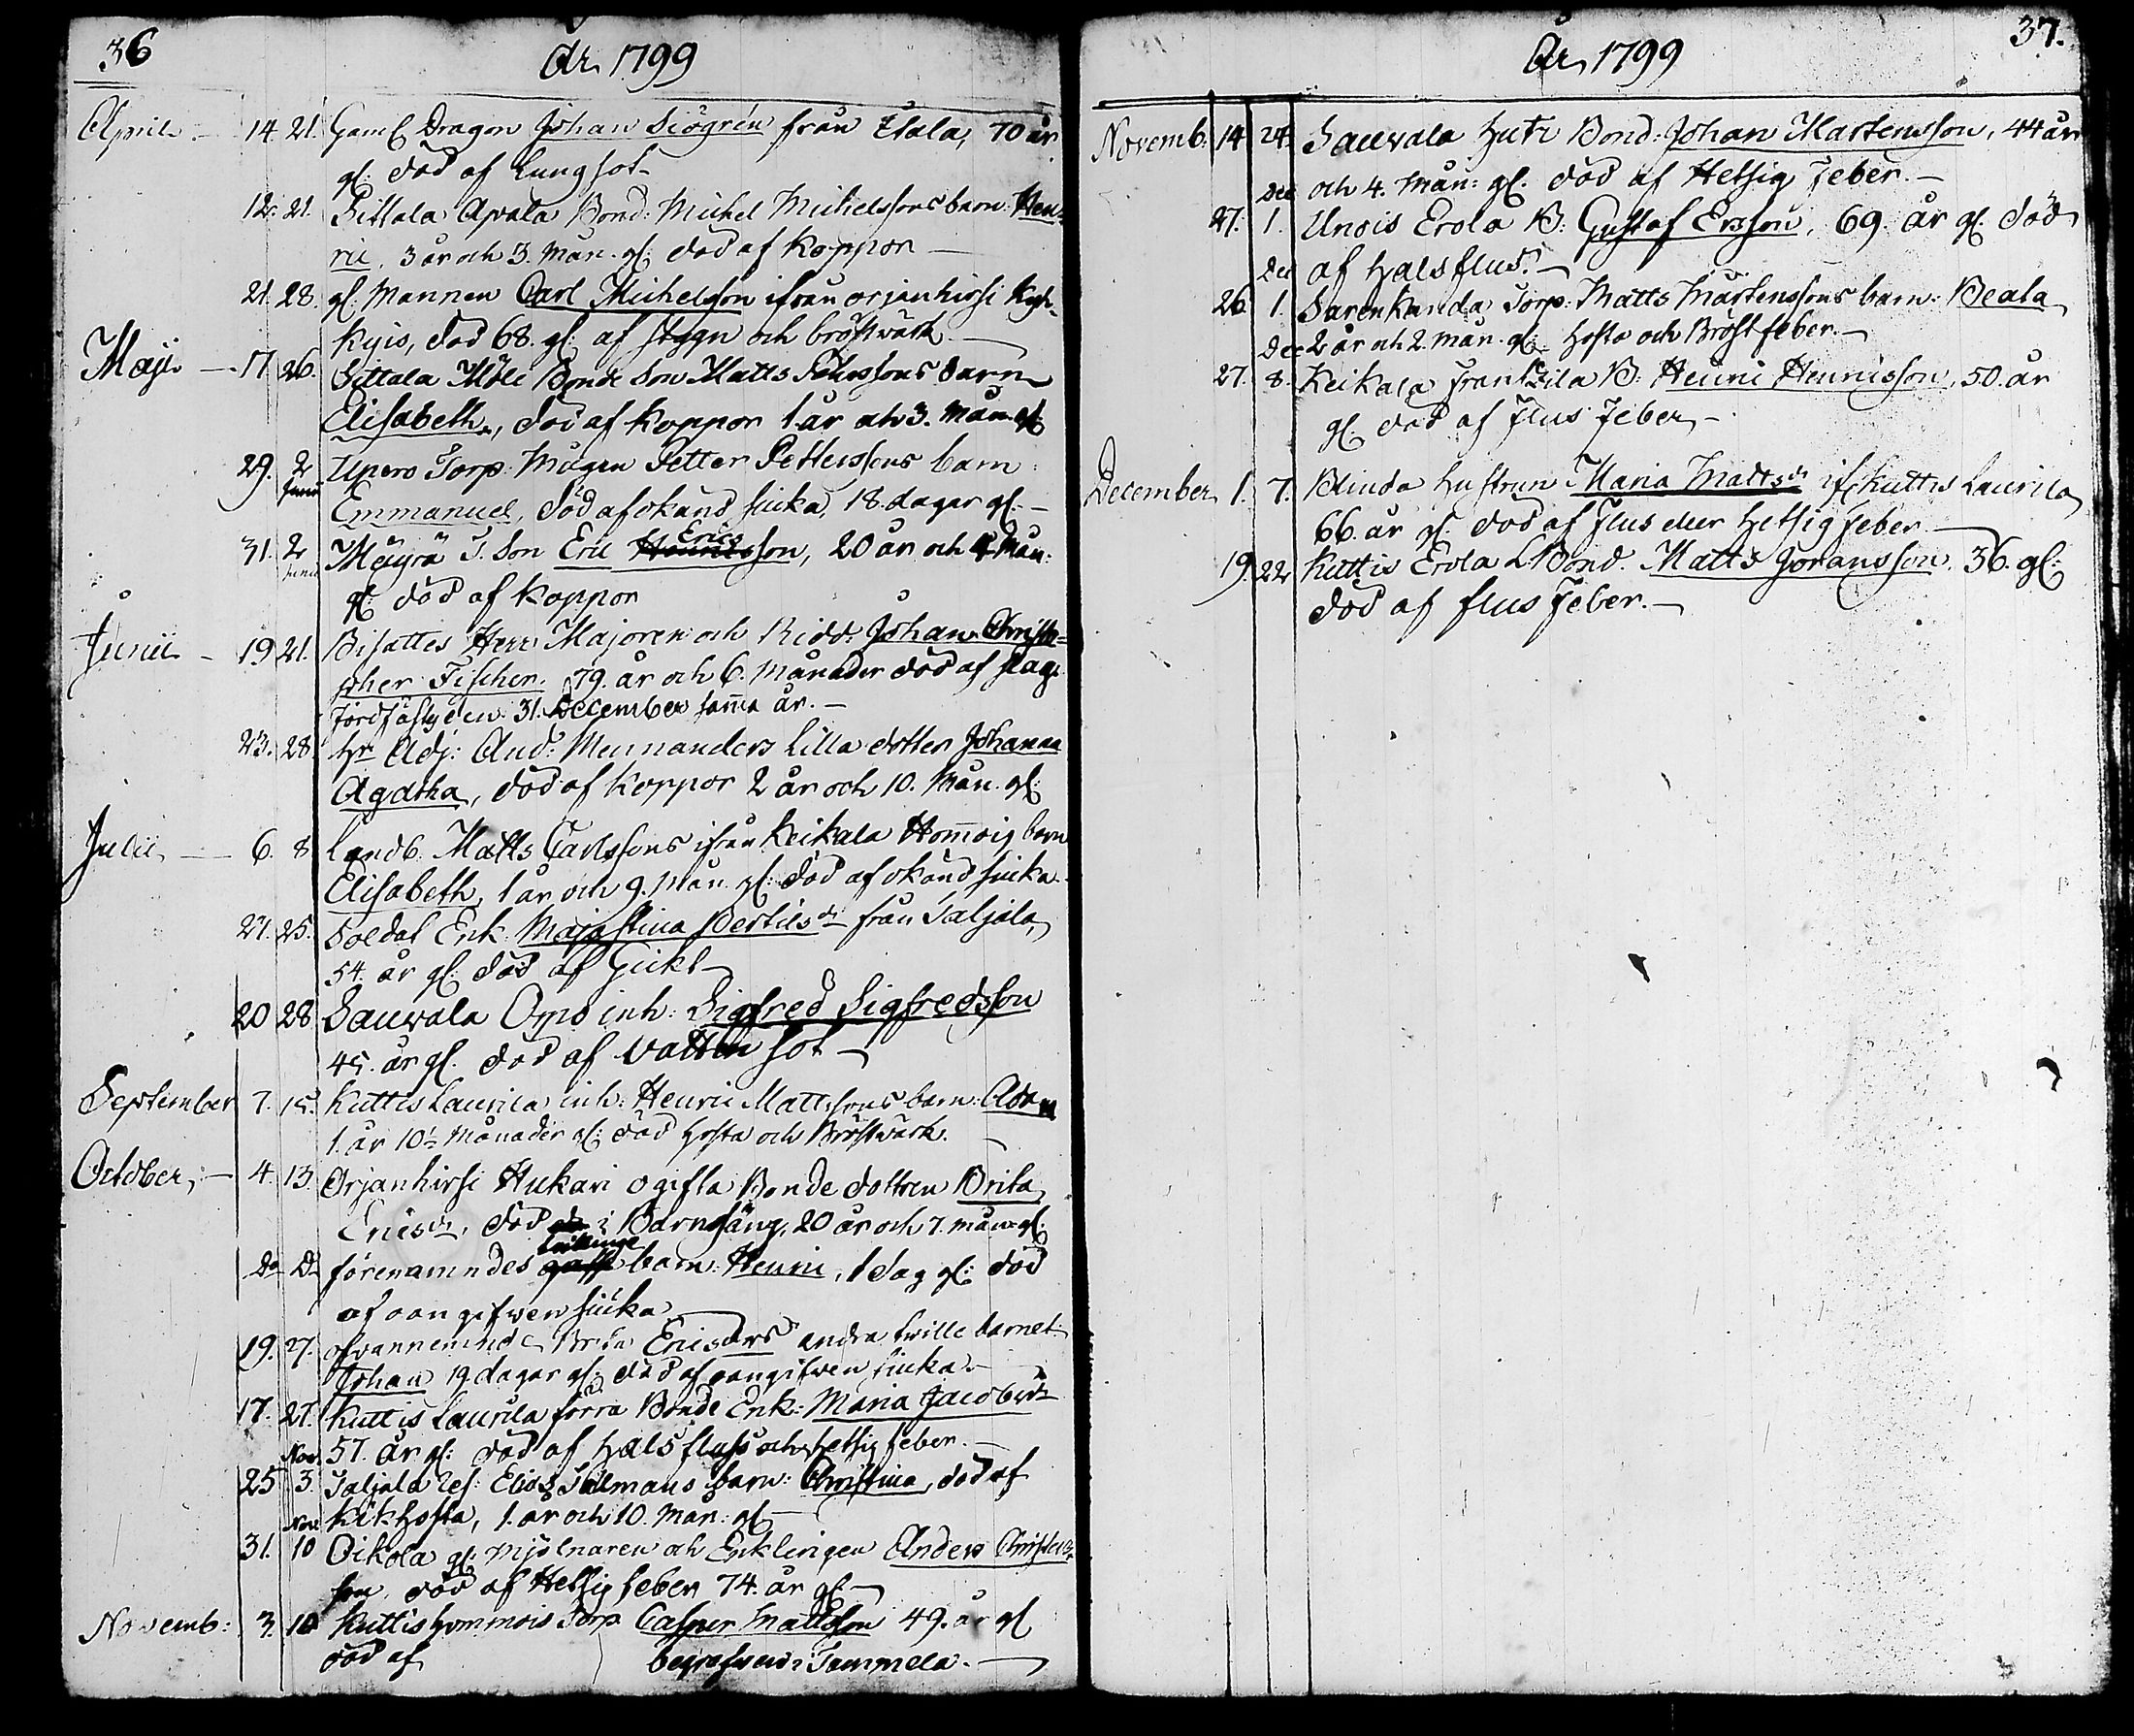 36
År 1799
April 14. 21. Gaml Dragon Johan Siögrén från Etala, 70 år
gl: död af Lungsot
12. 21. Sittala Apala Bond: Michel Michelssons barn: Hen-
ric, 3 år och 3. mån. gl: död af Koppor
21. 28. gl: Mannen Carl Michelsson ifrån Orjanhirsi Kyh
kyis, död 68. gl: af styng och bröstwärk
Maji 17. 26. Sittala Möli Bonde Son Matts barn
Elisabeth, död af Koppor 1 år och 3. mån. gl:
29. 2 Junii Torp: Mågen Petter Petterssons barn:
Emmanuel, död af okänd siuka, 18. dagar gl:
31. 2 Junii Mäyrä T. Son Eric Erics son, 20 år och 4 Mån:
gl: död af Koppor
Junii 19 21. Bisattes Herr Majoren och Ridd: Johan Christo-
pher Fischer. 79. år och 6. Månader död af slag.
Jordfästes den 31. December samma år.
23. 28. Hr Adj: And: Mennanders Lilla dotter Johanna
Agatha, död af Koppor 2 år och 10. Mån. gl:
Julii 6. 8 Landb. Matts Carlssons ifrån Keikala Homoig barn
Elisabeth, 1 år och 9. Mån. gl: död af okänd siuka
21. 25. Soldat Enk: Maja Stina Bertilsdr från Taljala,
54. år gl: död af Gickt
20 28 Sauvala Ops inh: Sigfred Sigfredsson
45. år gl. död af vatten sot
September 7. 15. Kuttis Laurila inh: Henric Mattssons barn: Adam
1. år 10½ Månader gl: död hosta och Bröstwärk.
October, 4. 13. Orjanhirsi Hukari ogifta Bonde dottren Brita
Ericsdr, död i Barnsäng, 20 år och 7. mån. gl:
Do Do förenämndes twillinge barn: Henric, 1 dag gl: död
af oangifwen siuka
19. 27. ofvannemnde Brita Ericsdrs andra twille barnet
Johan 19 dagar gl: död af oangifwen siuka
17. 27. Kuttis Laurila förra Bonde Enk: Maria Jacobsdr
57. år gl: död af Halsfluss och hetsig feber.
25 Nov 3. Taljala Res: Elias Salmans barn: Christina, död af
Kikhosta, 1. år och 10. Mån: gl
31. Nov 10 Oikola gl: Mjölnaren och Enklingen Anders Christers-
son, död af Hetsig feber 74. år gl
Novemb: 3. 10 Kuttis hommois Torp. Casper Mattsson 49. år gl
död af begrafwen i Tammela.
37.
År 1799
Novemb: 14 24. Sauvala Bond: Johan Martensson, 44 år
och 4. Mån: gl. död af Hetsig Feber.
27. Dec 1. Unois Erola B: Gustaf Ersson, 69. år gl. död
af halsflus.
26. Dec 1. Sarenkanda Torp: Matts Mårtenssons barn: Beata
2 år och 2. mån. gl: hosta och Bröstfeber.
27. Dec 8. Keikala Frantzila B: Henric Henricsson, 50. år
gl. död af Flus Feber
December 1. 7. Blinda hustrun Maria Mattsdr if. Kuttis Laurila
66. år gl död af Flus eller hetsig feber
19. 22 Kuttis Erola L:Bond. Matts Joransson. 36. gl:
död af flus Feber.